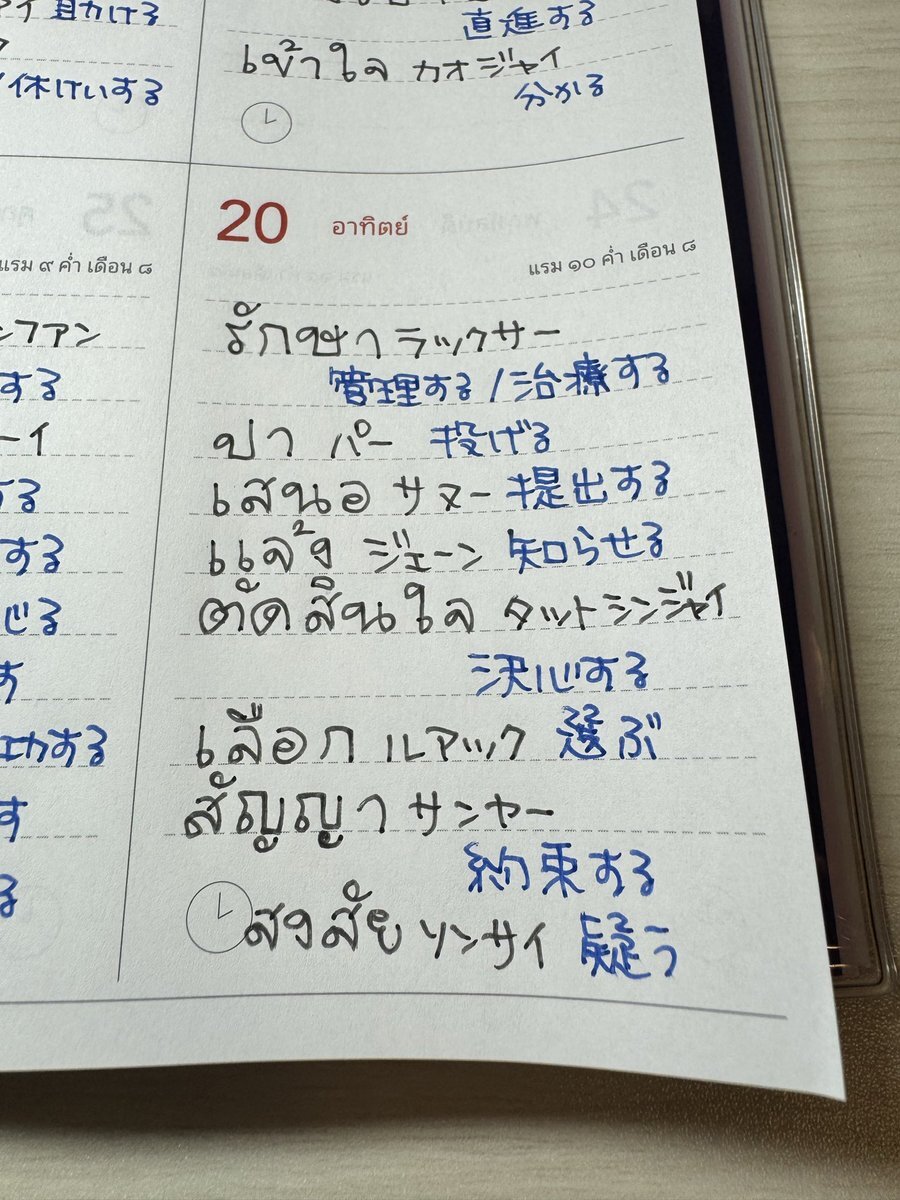 助ける
休けいする
直進する
เข้าใจ カオジャイ
分かる
25
24
แรม ๙ ค่ำ เดือน ๘
ンファン
する
ーイ
する
する
心する
す
功する
す
る
20 อาทิตย์
แรม ๑๐ ค่ำ เดือน ๘
รักษา ラックサー
管理する/治療する
ปา パー 投げる
เสนอ サヌー 提出する
แจ้ง ジェーン 知らせる
ตัดสินใจ タットシンジャイ
決心する
เลือก ルアック 選ぶ
สัญญา サンヤー
約束する
สงสัย ソンサイ 疑う